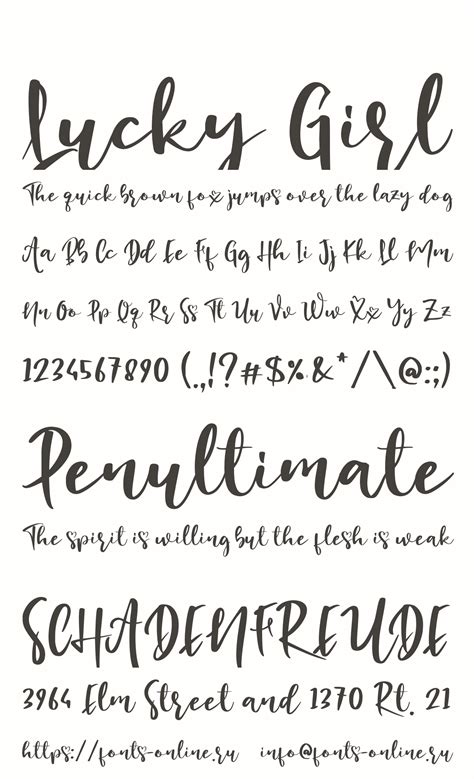 Lucky Girl
The quick brown fox jumps over the lazy dog
Aa Bb Cc Dd Ee Ff Gg Hh Ii Jj Kk Ll Mm
Nn Oo Pp Qq Rr Ss Tt Uu Vv Ww Xx Yy Zz
1234567890 (.,!?#$%&*/\@:;)
Penultimate
The spirit is willing but the flesh is weak
SCHADENFREUDE
3964 Elm Street and 1370 Rt. 21
https://fonts-online.ru info@fonts-online.ru